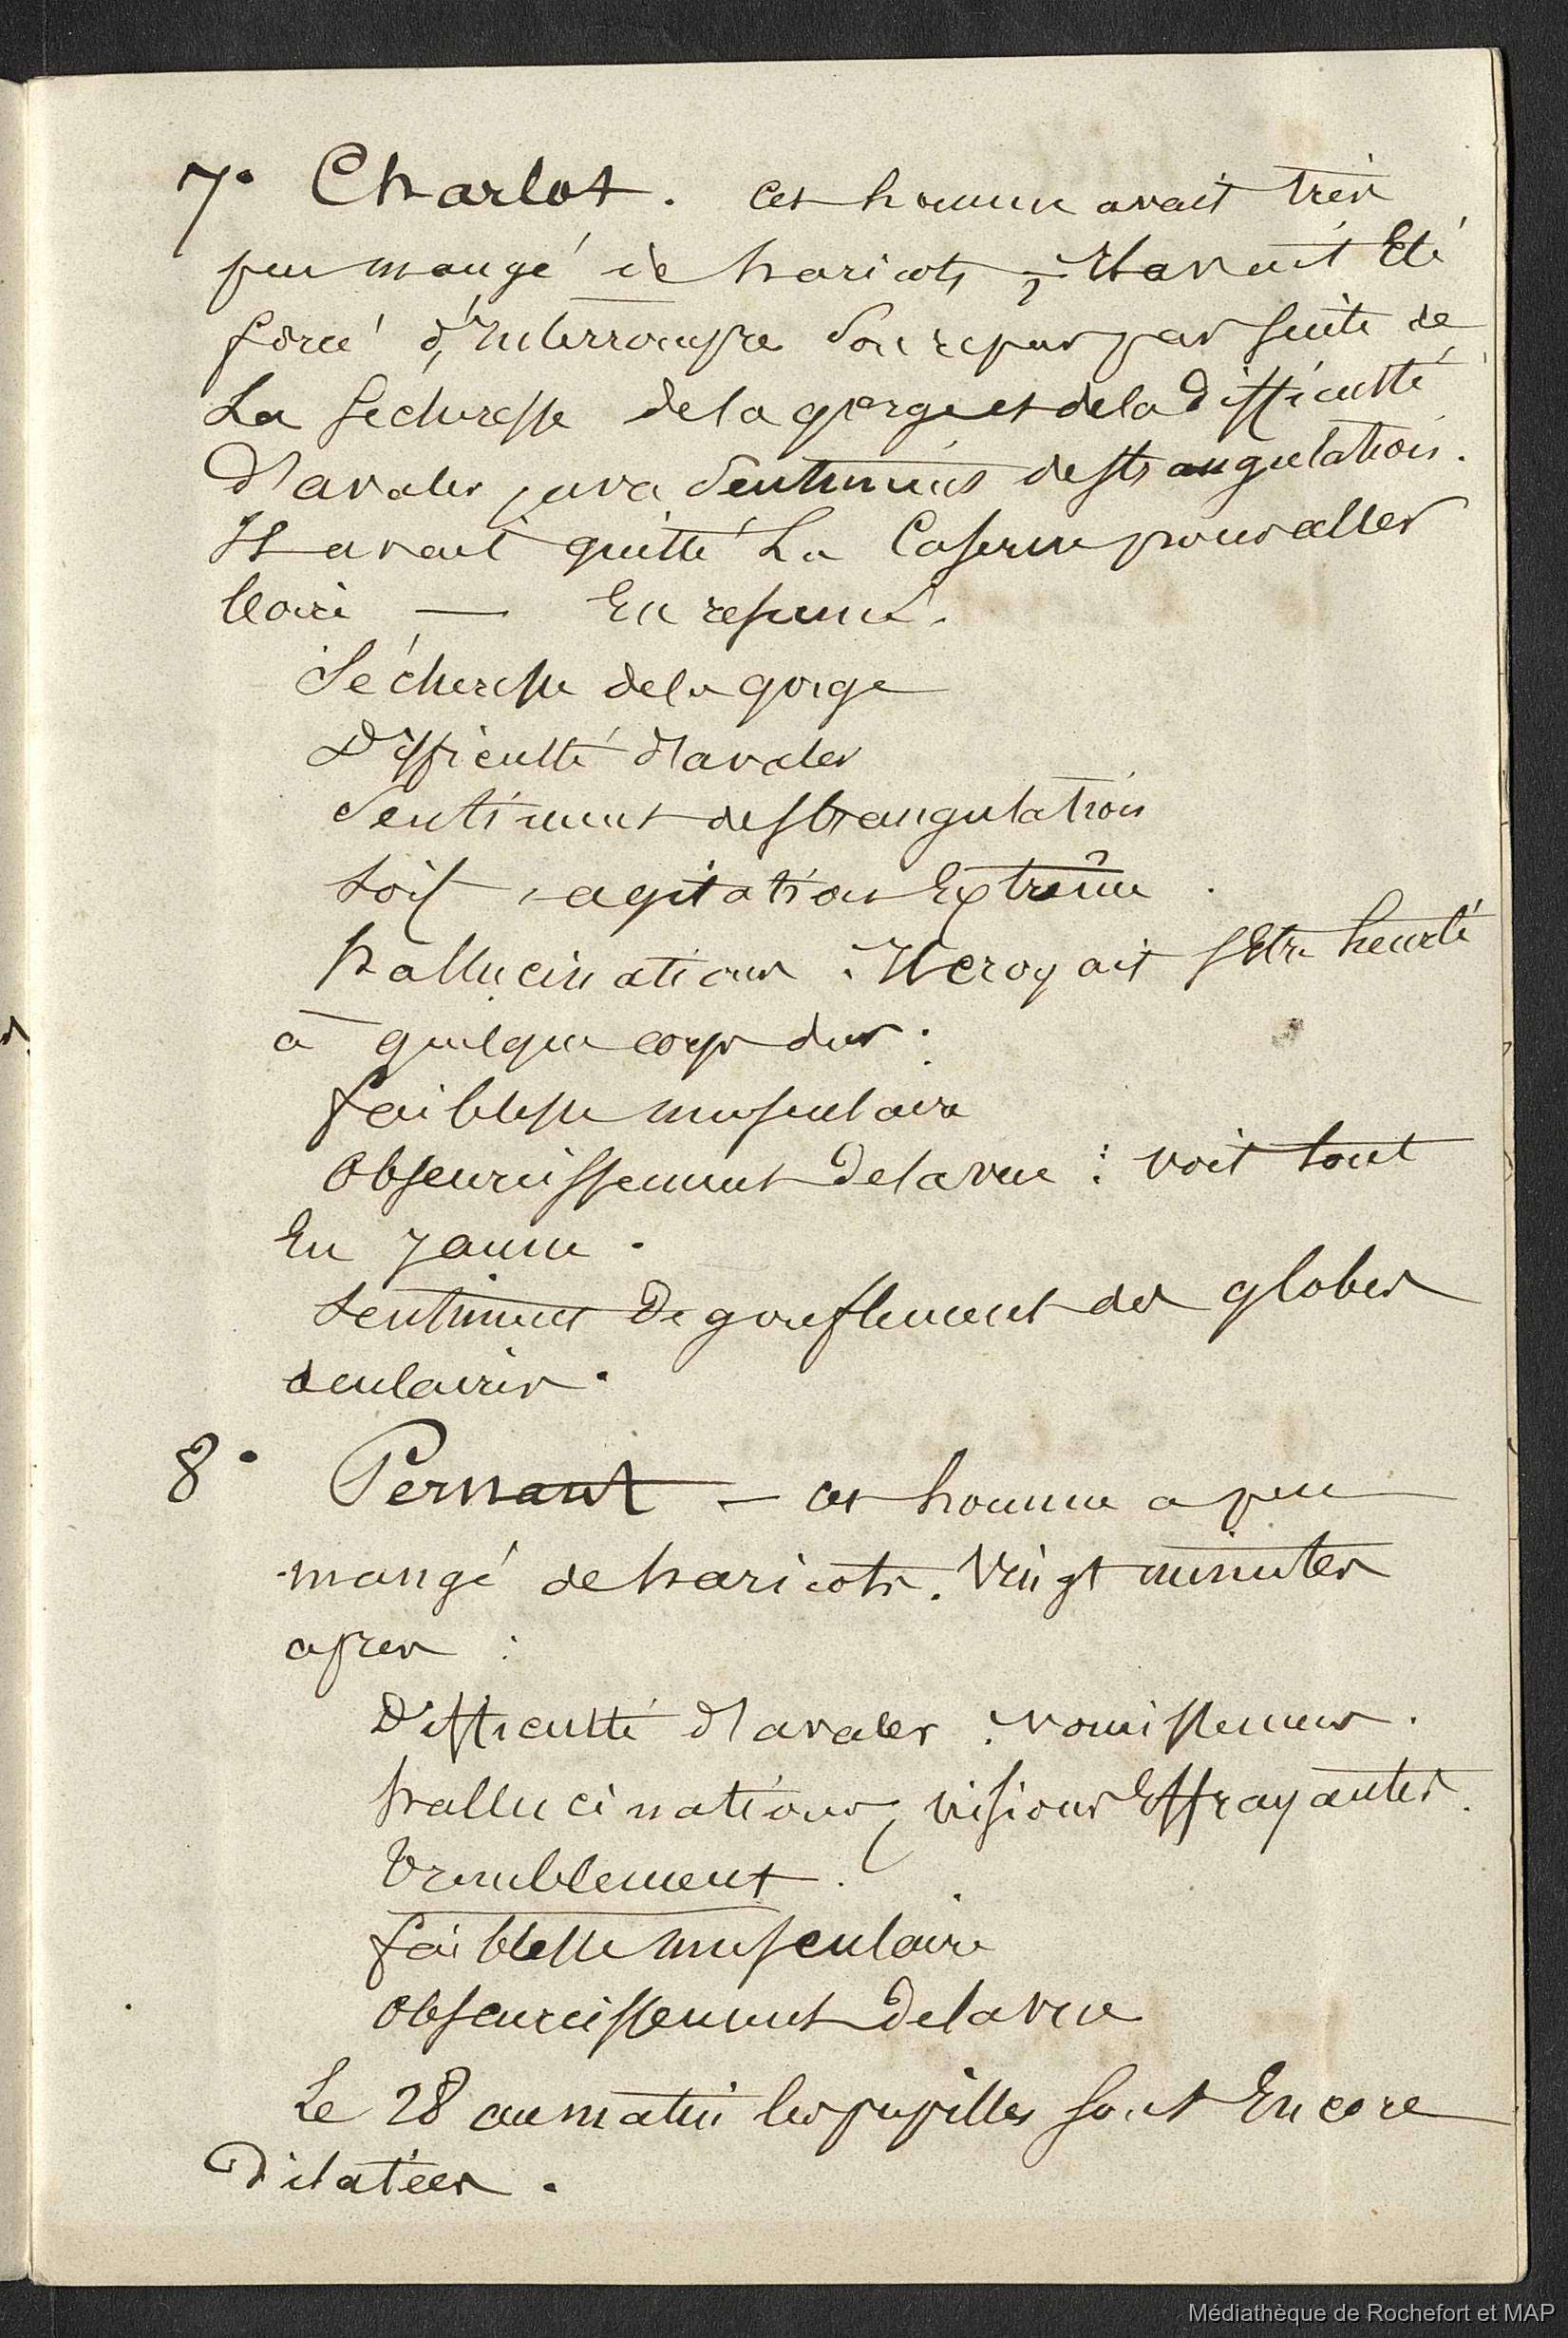 7° Charlot. cet homme avait très
peu mangé de haricots, Il avait Eté
forcé d'Interrompre Son repas par suite de
La sécheresse de la gorge et de la Difficulté
D'avaler, avec Sentiment de strangulation.
Il avait quitté La Caserne pour aller
boire — En resumé.
Sécheresse de la gorge
Difficulté d'avaler
Sentiment de strangulation
Soif, agitation Extrême.
hallucinations. Il croyait s'Etre heurté
à quelque corps dur.
faiblesse musculaire
Obscurcissement De la vue : voit tout
En jaune.
Sentiment De gonflement des globes
oculaires.
8° Pernant — cet homme a peu
mangé de haricots. Vingt minutes
apres :
Difficulté d'avaler. vomissemens.
hallucinations, visions Effrayantes.
tremblement.
faiblesse musculaire
Obscurcissement De la vue
Le 28 au matin les pupilles sont Encore
Dilatées.
Médiathèque de Rochefort et MAP